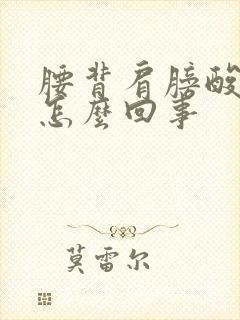 腰背肩膀酸
怎麼回事
莫雷尔